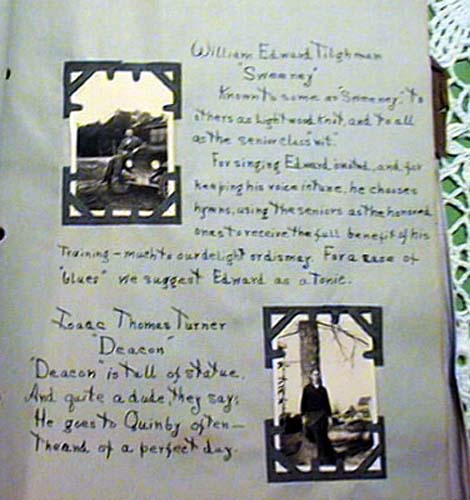 William Edward Tilghman
"Sweeney"
Known to some as "Sweeney," to
others as Lightwood Knot, and to all
as the senior class "wit."
For singing Edward, and for
keeping his voice in tune, he chooses
hymns, using the seniors as the honored
ones to receive the full benefit of his
training – much to our delight or dismay. For a case of
"blues" we suggest Edward as a tonic.
Isaac Thomas Turner
"Deacon"
"Deacon" is tall of statue,
And quite a dude, they say;
He goes to Quinby often—
The end of a perfect day.